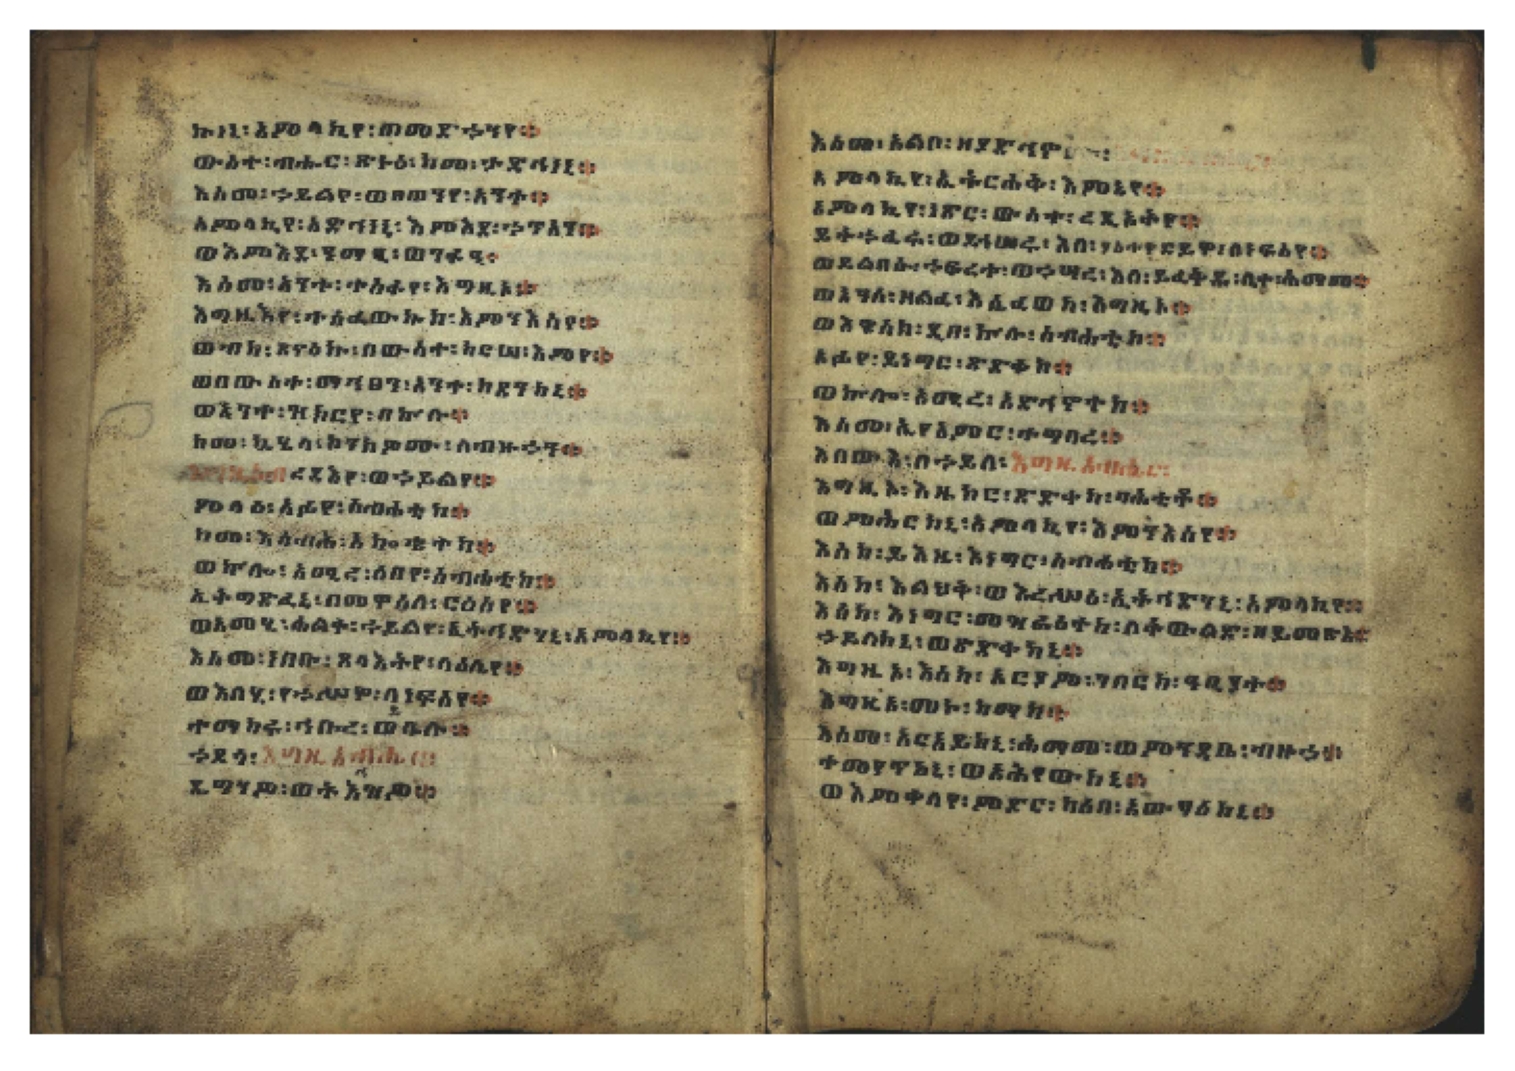 ኩነኒ፡አምላኪየ፡ወመድኃንየ።
ውስተ፡ብሔር፡ጽኑዕ፡ከመ፡ታድኅነኒ።
እስመ፡ኃይልየ፡ወጸወንየ፡አንተ።
አምላኪየ፡አድኅነኒ፡እምእደ፡ኃጥአን።
ወእምእደ፡ዓማፂ፡ወገፋዒ።
እስመ፡አንተ፡ተስፋየ፡እግዚኦ።
እግዚእየ፡ተሰፈውኩከ፡እምንእስየ።
ወብከ፡ጸናዕኩ፡በውስተ፡ከርሠ፡እምየ።
ወበውስተ፡ማኅፀን፡አንተ፡ከደንከኒ።
ወአንተ፡ዝክርየ፡በኵሉ።
ከመ፡ኪሄላ፡ኮንክዎሙ፡ለብዙኃን።
ረዳእየ፡ወኃይልየ።
ምላዕ፡አፉየ፡ስብሐቲከ።
ከመ፡እሰብሕ፡አኰቴተከ።
ወኵሎ፡አሚረ፡ዕበየ፡ስብሐቲከ።
ኢትግድፈኒ፡በመዋዕለ፡ርስእየ።
ወአመሂ፡ሐልቀ፡ኃይልየ፡ኢትኅድገኒ፡አምላኪየ።
እስመ፡ነበቡ፡ጸላእትየ፡ላዕሌየ።
ወእለሂ፡የኃሥሥዋ፡ለነፍስየ።
ተማከሩ፡ኅቡረ፡ወይቤሉ።
ኃደጎ፡እግዚአብሔር።
ዴግንዎ፡ወትእኅዝዎ።
እስመ፡አልቦ፡ዘያድኅኖ፡
አምላኪየ፡ኢትርሐቅ፡እምኔየ።
አምላኪየ፡ነጽር፡ውስተ፡ረዲኦትየ።
ይትኃፈሩ፡ወይኅሠሩ፡እለ፡ያስተዋድይዋ፡ለነፍስየ።
ወይልበሱ፡ኃፍረተ፡ወኃሣረ፡እለ፡ይፈቅዱ፡ሊተ፡ሕማመ።
ወአንሰ፡ዘልፈ፡እሴፈወከ፡እግዚኦ።
ወእዌስክ፡ዲበ፡ኵሉ፡ስብሐቲከ።
አፉየ፡ይነግር፡ጽድቀከ።
ወኵሎ፡አሚረ፡አድኅኖተከ።
እስመ፡ኢየአምር፡ተግባረ።
እበውእ፡በኃይለ፡እግዚአብሔር፡
እግዚኦ፡እዜከር፡ጽድቀከ፡ባሕቲቶ።
ወምሕርከኒ፡አምላኪየ፡እምንእስየ።
እስከ፡ይእዜ፡እነግር፡ስብሐቲከ።
እስከ፡እልህቅ፡ወእረሥዕ፡ኢትኅድገኒ፡አምላኪየ።
እስከ፡እነግር፡መዝራዕተከ፡ለትውልድ፡ዘይመጽእ።
ኃይለከኒ፡ወጽድቀከኒ።
እግዚኦ፡እስከ፡አርያም፡ገበርከ፡ዓቢያተ።
እግዚኦ፡መኑ፡ከማከ።
እስመ፡አርአይከኒ፡ሕማመ፡ወምንዳቤ፡ብዙኃ።
ተመየጥከኒ፡ወአሕየውከኒ።
ወእምቀላየ፡ምድር፡ካዕበ፡አውፃዕከኒ።